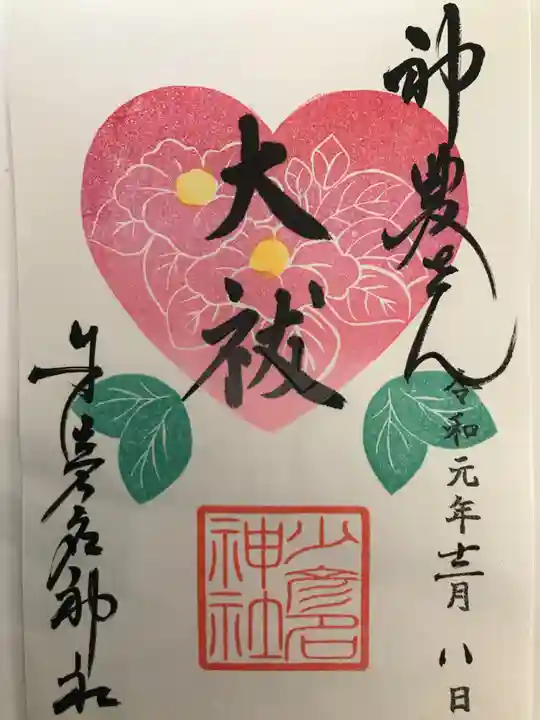 神農さん
令和元年十二月八日
大祓
少彦名神社
少彦名神社